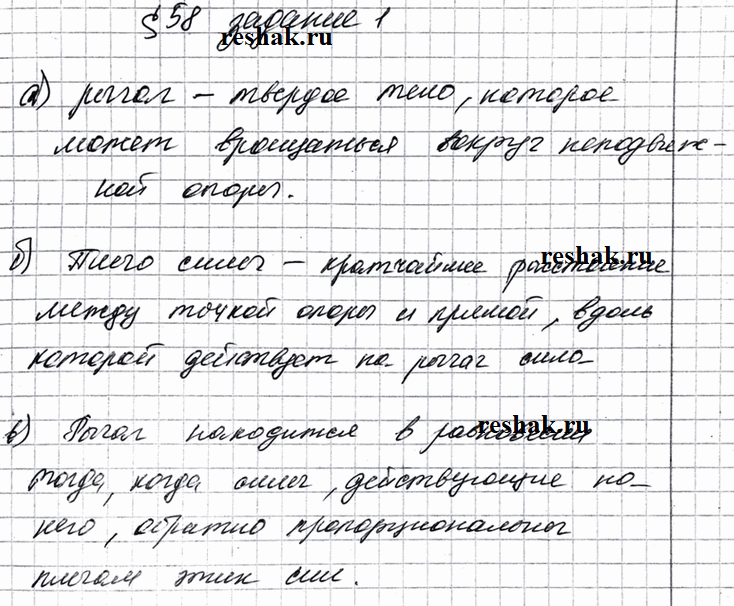 § 58 задание 1
reshak.ru
а) рычаг – твердое тело, которое
может вращаться вокруг неподвиж-
ной опоры.
reshak.ru
б) Плечо силы – кратчайшее расстояние
между точкой опоры и прямой, вдоль
которой действует на рычаг сила
reshak.ru
в) Рычаг находится в равновесии
тогда, когда силы, действующие на
него, обратно пропорциональны
плечам этих сил.